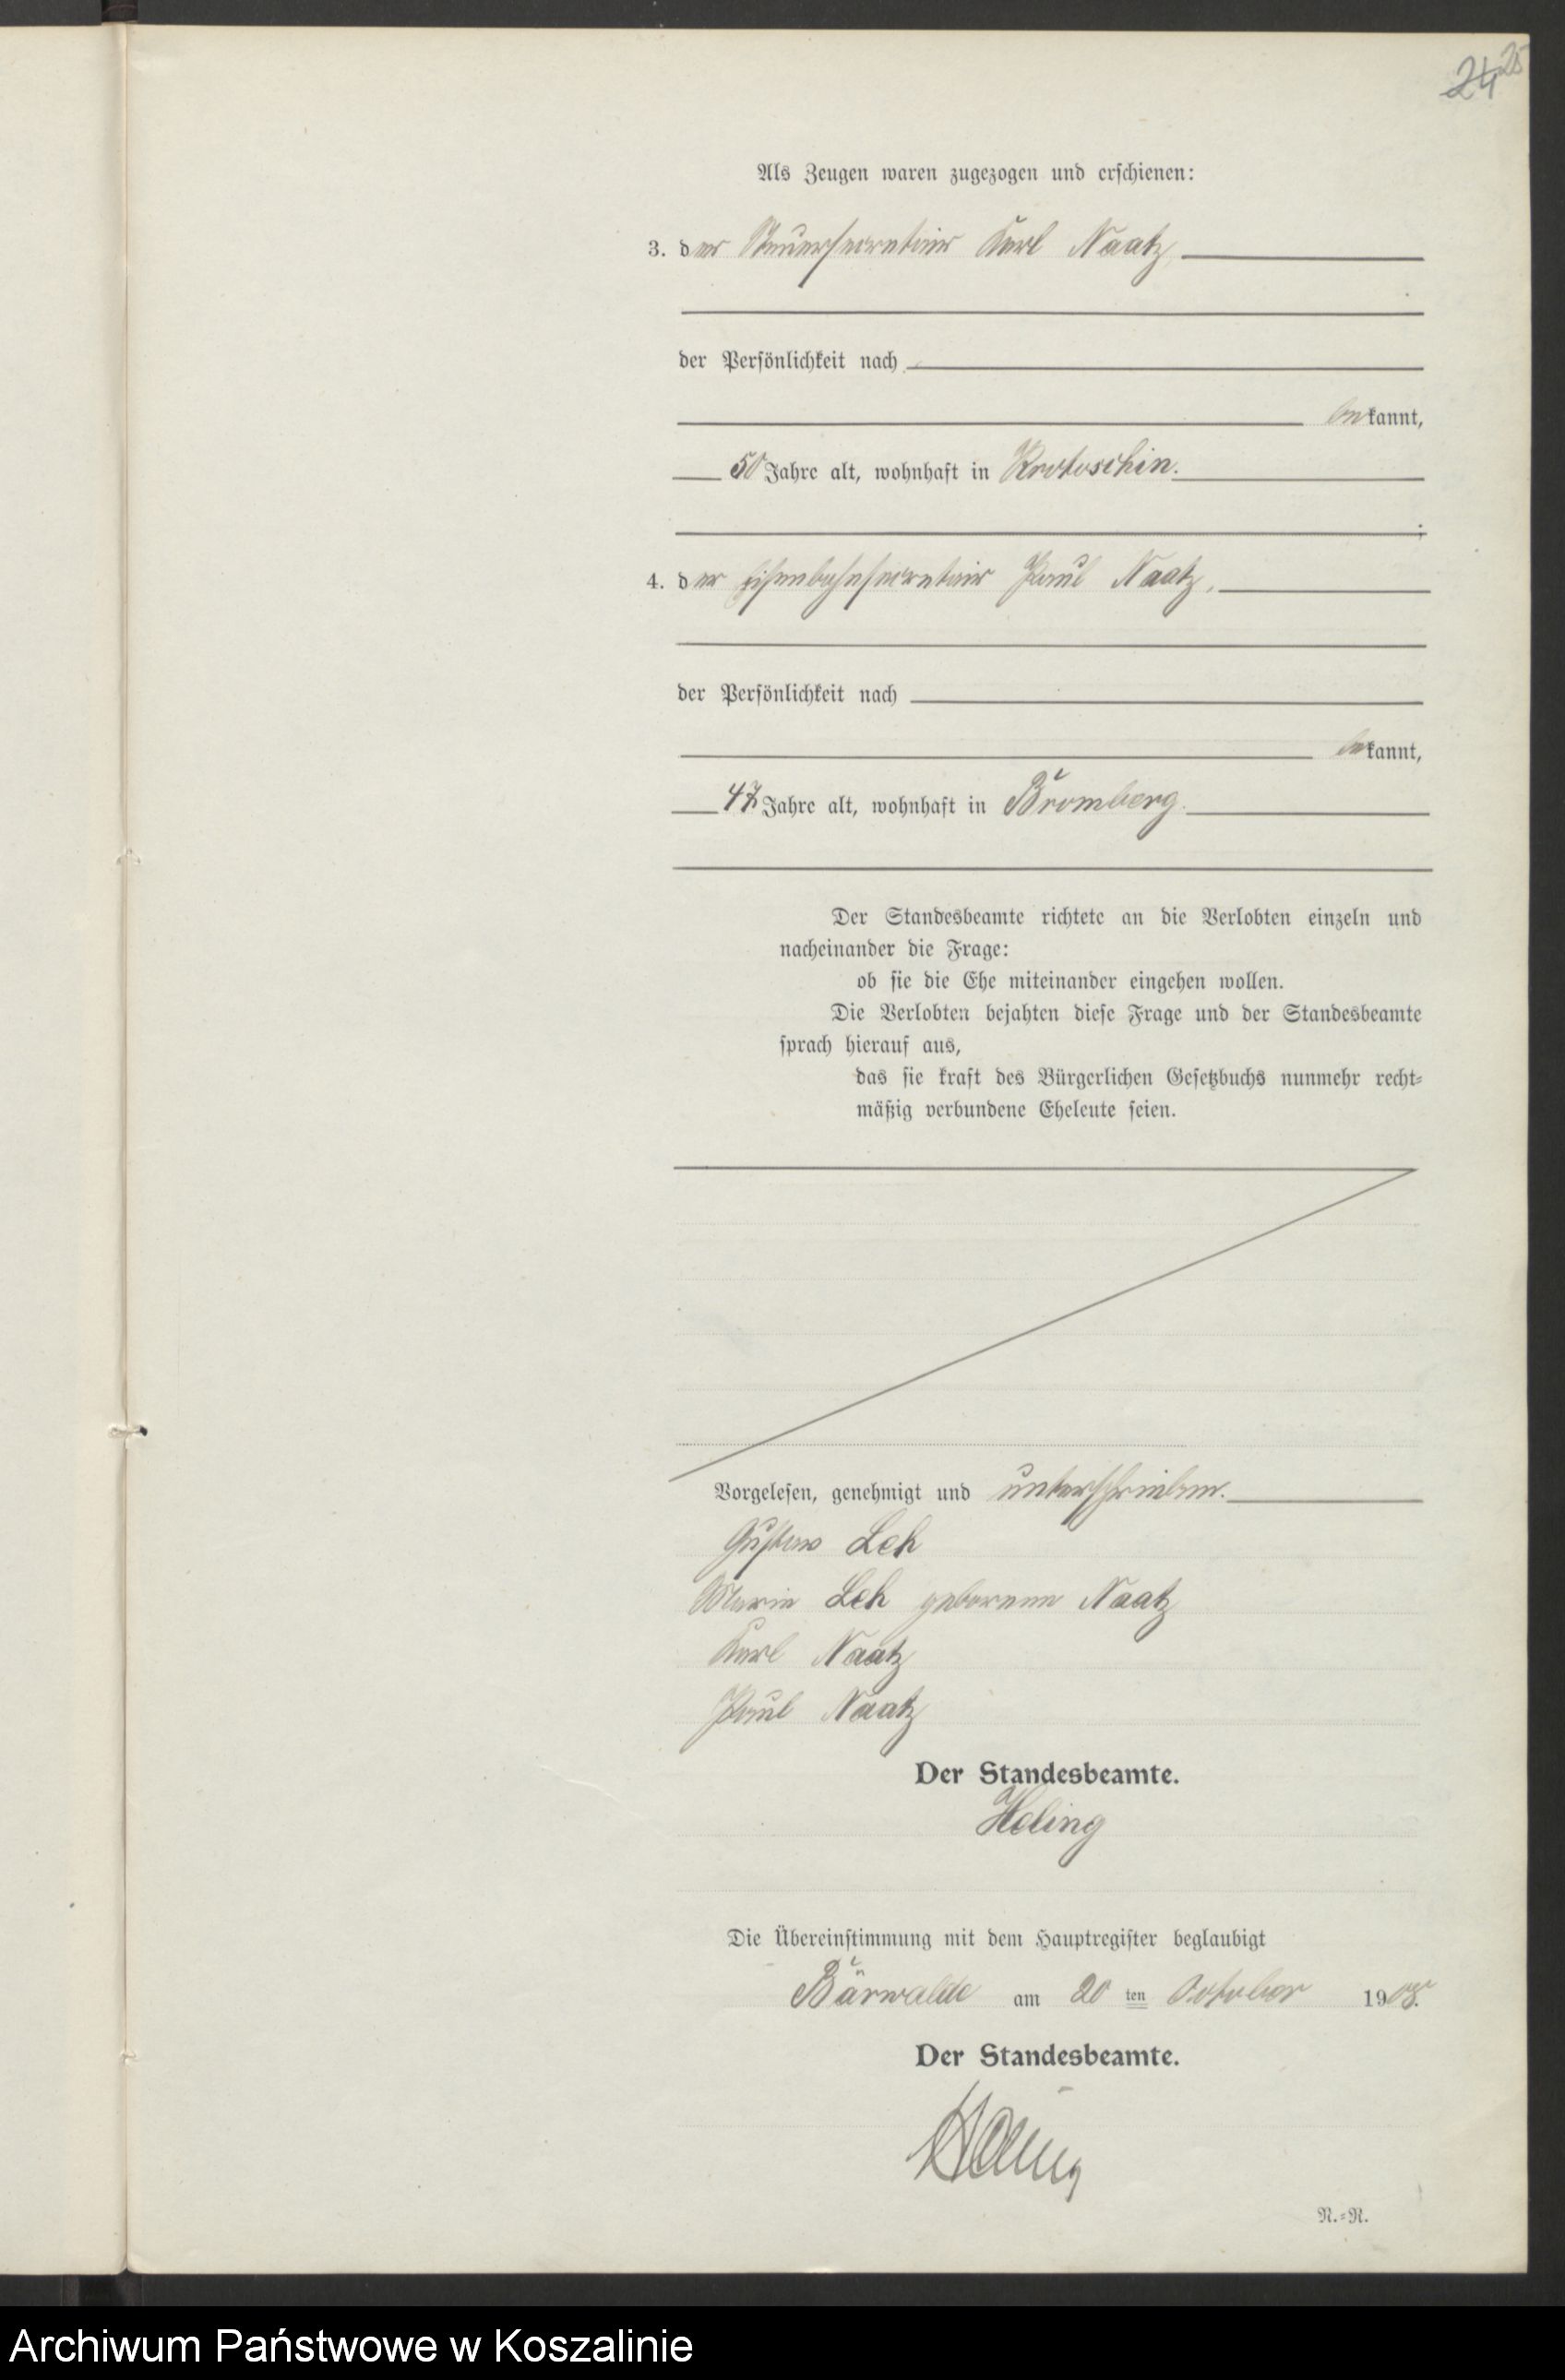 24 25
Als Zeugen waren zugezogen und erschienen:
3. der Steuersecretair Karl Naatz,
der Persönlichkeit nach
bekannt,
50 Jahre alt, wohnhaft in Krotoschin.
;
4. der Eisenbahnsecretair Paul Naatz,
der Persönlichkeit nach
bekannt,
47 Jahre alt, wohnhaft in Bromberg.
Der Standesbeamte richtete an die Verlobten einzeln und
nacheinander die Frage:
ob sie die Ehe miteinander eingehen wollen.
Die Verlobten bejahten diese Frage und der Standesbeamte
sprach hierauf aus,
das sie kraft des Bürgerlichen Gesetzbuchs nunmehr recht-
mäßig verbundene Eheleute seien.
Vorgelesen, genehmigt und unterschrieben.
Gustav Leh
Marie Leh geborene Naatz
Karl Naatz
Paul Naatz
Der Standesbeamte.
Heling
Die Übereinstimmung mit dem Hauptregister beglaubigt
Bärwalde am 20 ten October 1908.
Der Standesbeamte.
Heling
N.-R.
Archiwum Państwowe w Koszalinie